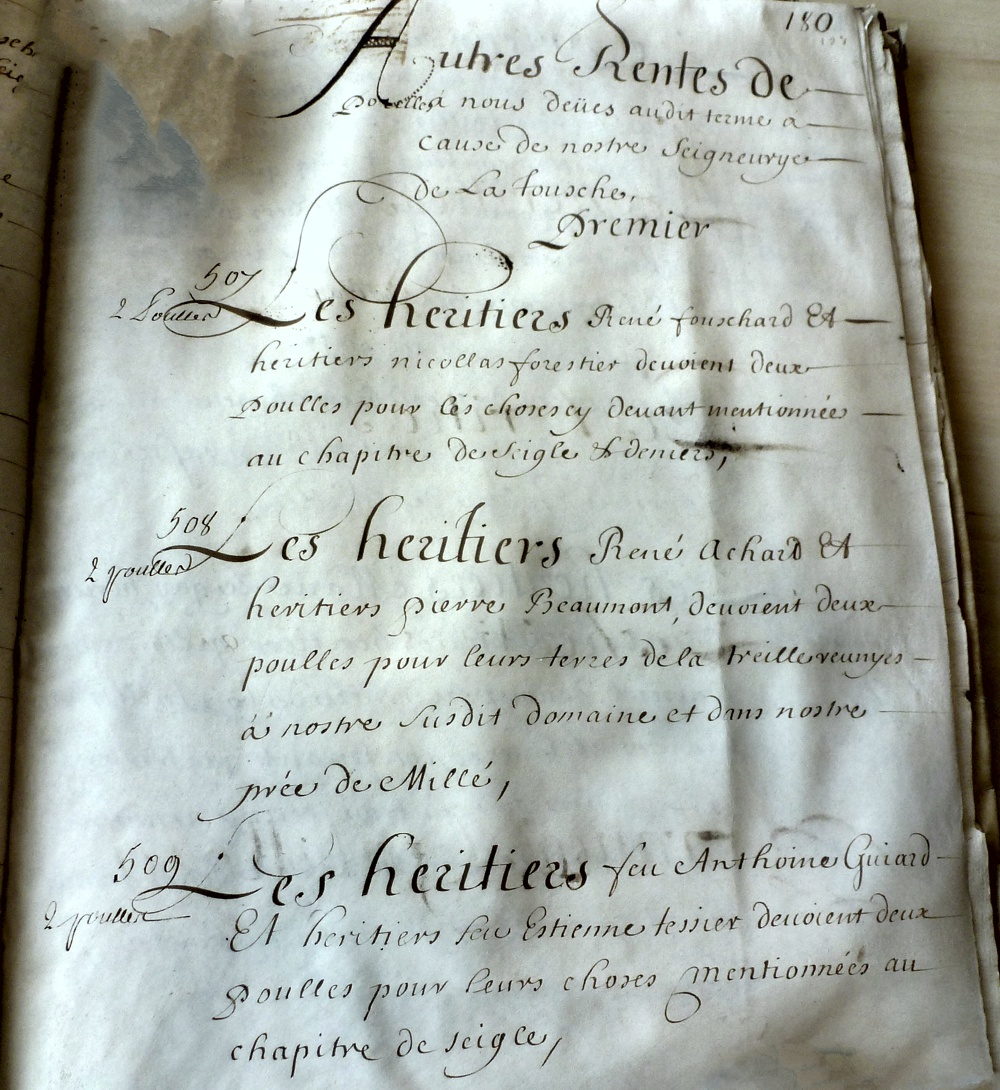 180
Autres Rentes de
Poulles à nous deües audit terme a
cause de nostre Seigneurye
de La Tousche,
Premier
507
2 Poulles Les heritiers René fouschard Et
heritiers nicollas forestier devoient deux
Poulles pour les choses cy devant mentionnées
au chapitre de Seigle & deniers,
508
2 poulles Les heritiers René Achard Et
heritiers pierre Beaumont, devoient deux
poulles pour leurs terres de la treille reunyes
à nostre susdit domaine et dans nostre
prée de Millé,
509
2 poulles Les heritiers feu Anthoine Guiard
Et heritiers feu Estienne tessier devoient deux
Poulles pour leurs choses mentionnées au
chapitre de seigle,